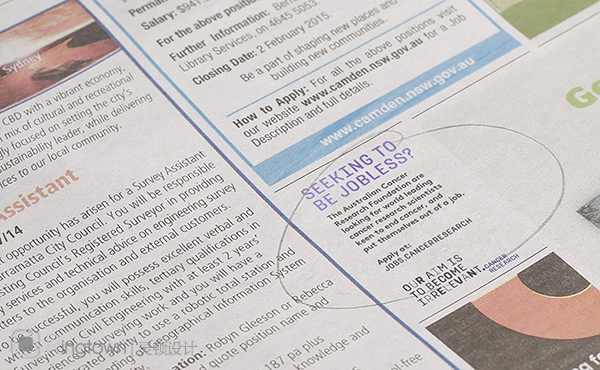 Sydney
CBD with a vibrant economy,
mix of cultural and recreational
focused on setting the city's
sustainability leader, while delivering
to our local community.
Assistant
/14
opportunity has arisen for a Survey Assistant
City Council. You will be responsible
Council's Registered Surveyor in providing
services and technical advice on engineering survey
to the organisation and external customers.
successful, you will possess excellent verbal and
communication skills, tertiary qualifications in
Civil Engineering with at least 2 years'
surveying work and you will have a
to use a robotic total station and
Geographical Information System
Robyn Gleeson or Rebecca
quote position name and
187 pa plus
knowledge and
Salary:
For the above position
Further Information:
Library Services, on 4645 5053.
Closing Date: 2 February 2015.
Be a part of shaping new places and
building new communities.
How to Apply: For all the above positions visit
our website www.camden.nsw.gov.au for a Job
Description and full details.
www.camden.nsw.gov.au
SEEKING TO
BE JOBLESS?
The Australian Cancer
Research Foundation are
looking for world leading
cancer research scientists
keen to end cancer, and
put themselves out of a job.
Apply at:
JOBS.CANCERRESEARCH
OUR AIM IS
TO BECOME
IRRELEVANT.
CANCER
RESEARCH
灵顿设计